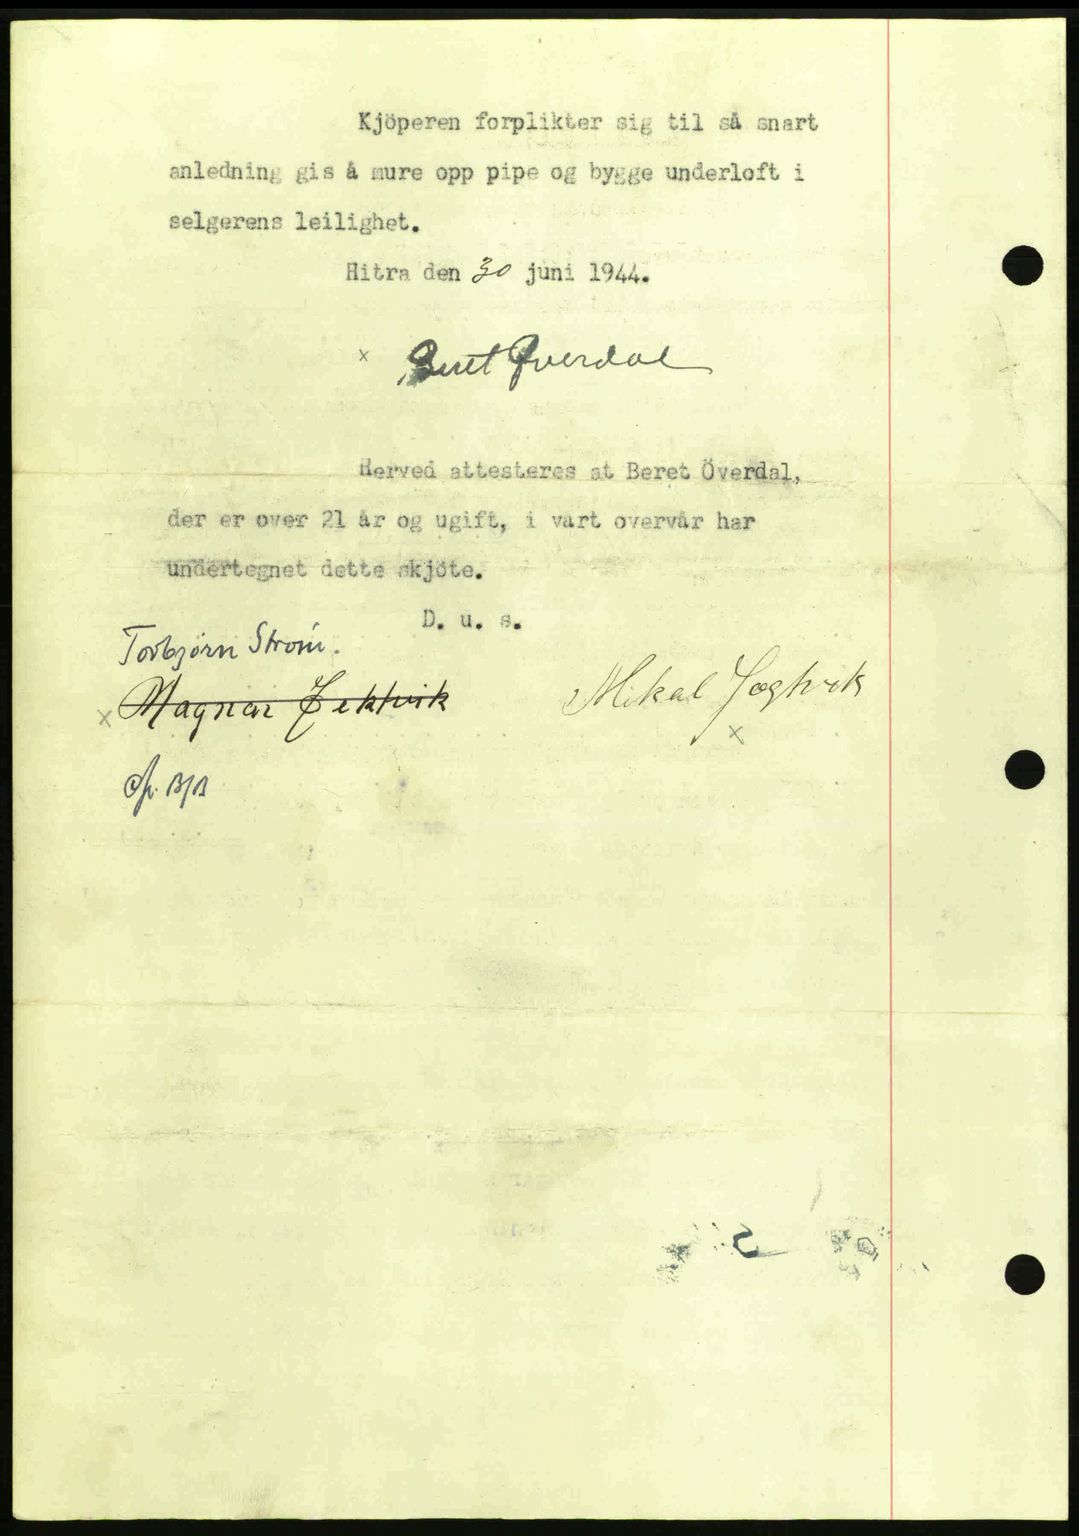 Kjöperen forplikter sig til så snart
anledning gis å mure opp pipe og bygge underloft i
selgerens leilighet.
Hitra den 30 juni 1944.
x Beret Øverdal
Herved attesteres at Beret Överdal,
der er over 21 år og ugift, i vårt overvär har
undertegnet dette skjöte.
D. u. s.
Torbjørn Strøm.
x Magnar
Mikal
x